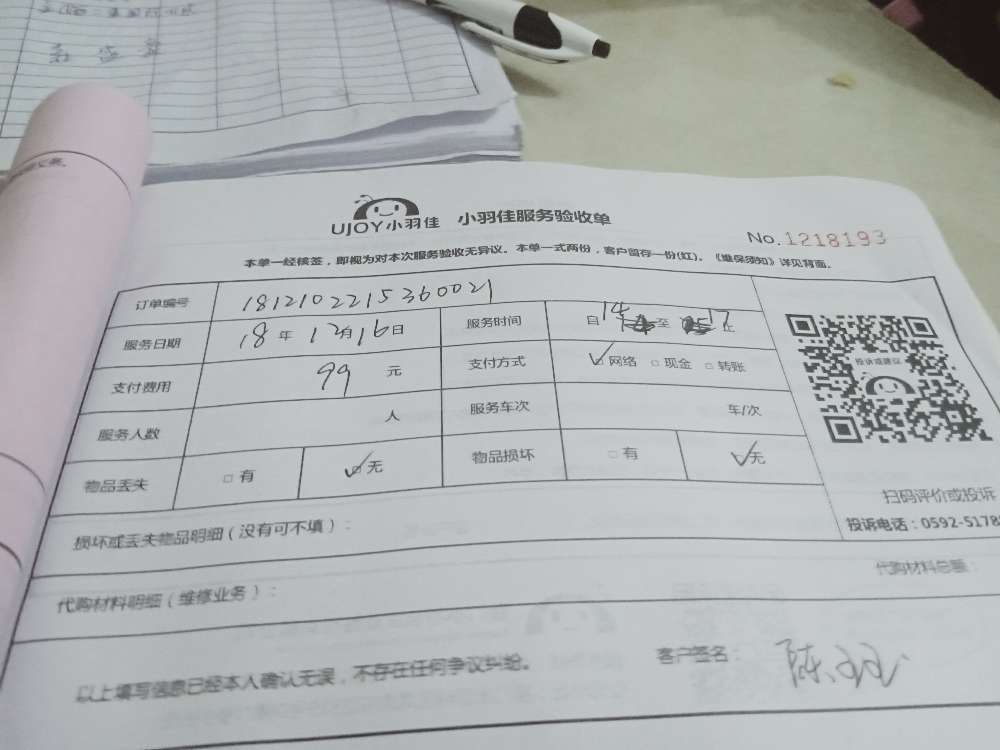 UJOY小羽佳 小羽佳服务验收单
No.1218193
本单一经核签，即视为对本次服务验收无异议。本单一式两份，客户留存一份(红)。《维保须知》详见背面。
订单编号 1812102215360021
服务日期 18年12月16日 服务时间 自14至17止
支付费用 99元 支付方式 ☑网络 □现金 □转账
投诉或建议
服务人数 人 服务车次 车/次
物品丢失 □有 ☑无 物品损坏 □有 ☑无
扫码评价或投诉
投诉电话：0592-5178
损坏或丢失物品明细（没有可不填）：
代购材料明细（维修业务）： 代购材料总额：
以上填写信息已经本人确认无误，不存在任何争议纠纷。 客户签名： 陈